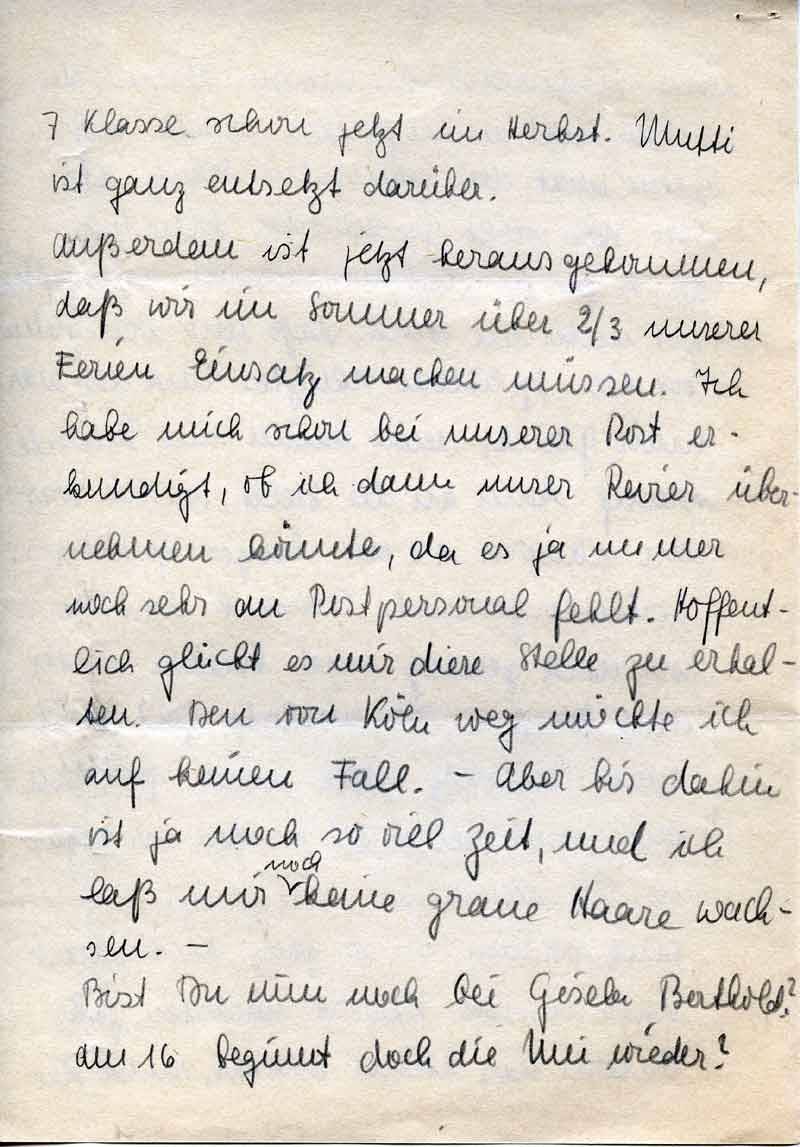 7 Klasse schon jetzt im Herbst. Mutti
ist ganz entsetzt darüber.
Außerdem ist jetzt herausgekommen,
daß wir im Sommer über 2/3 unserer
Ferien Einsatz machen müssen. Ich
habe mich schon bei unserer Post er-
kundigt, ob ich dann unser Revier über-
nehmen könnte, da es ja immer
noch sehr an Postpersonal fehlt. Hoffent-
lich glückt es mir diese Stelle zu erhal-
ten. Den von Köln weg möchte ich
auf keinen Fall. – Aber bis dahin
ist ja noch so viel Zeit, und ich
laß mir noch keine graue Haare wach-
sen. –
Bist Du nun noch bei Gisela Berthold?
am 16 beginnt doch die Uni wieder?